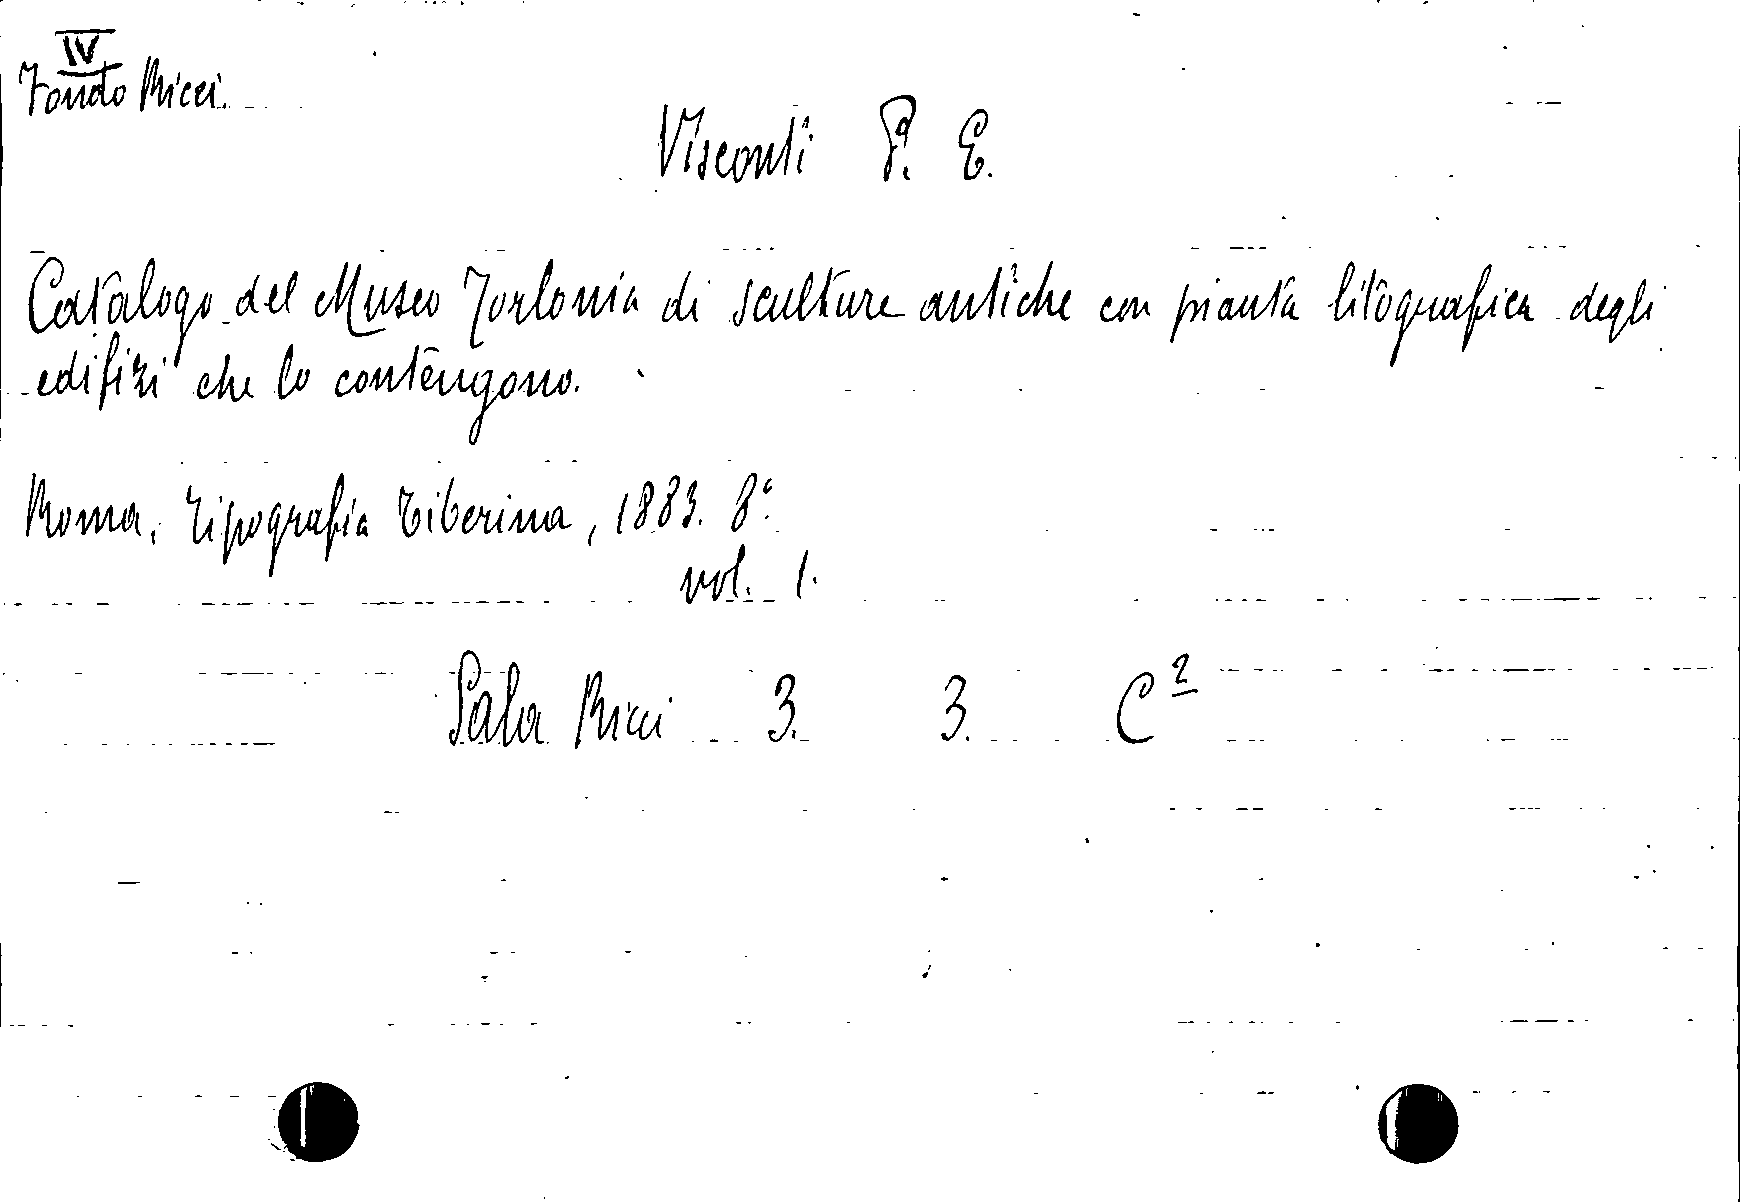 IV
Fondo Ricci.
Visconti P. E.
Catalogo del Museo Torlonia di sculture antiche con pianta litografica degli
edifizi che lo contengono.
Roma, Tipografia Tiberina, 1883. 8°.
vol. 1.
Sala Ricci 3. 3. C²